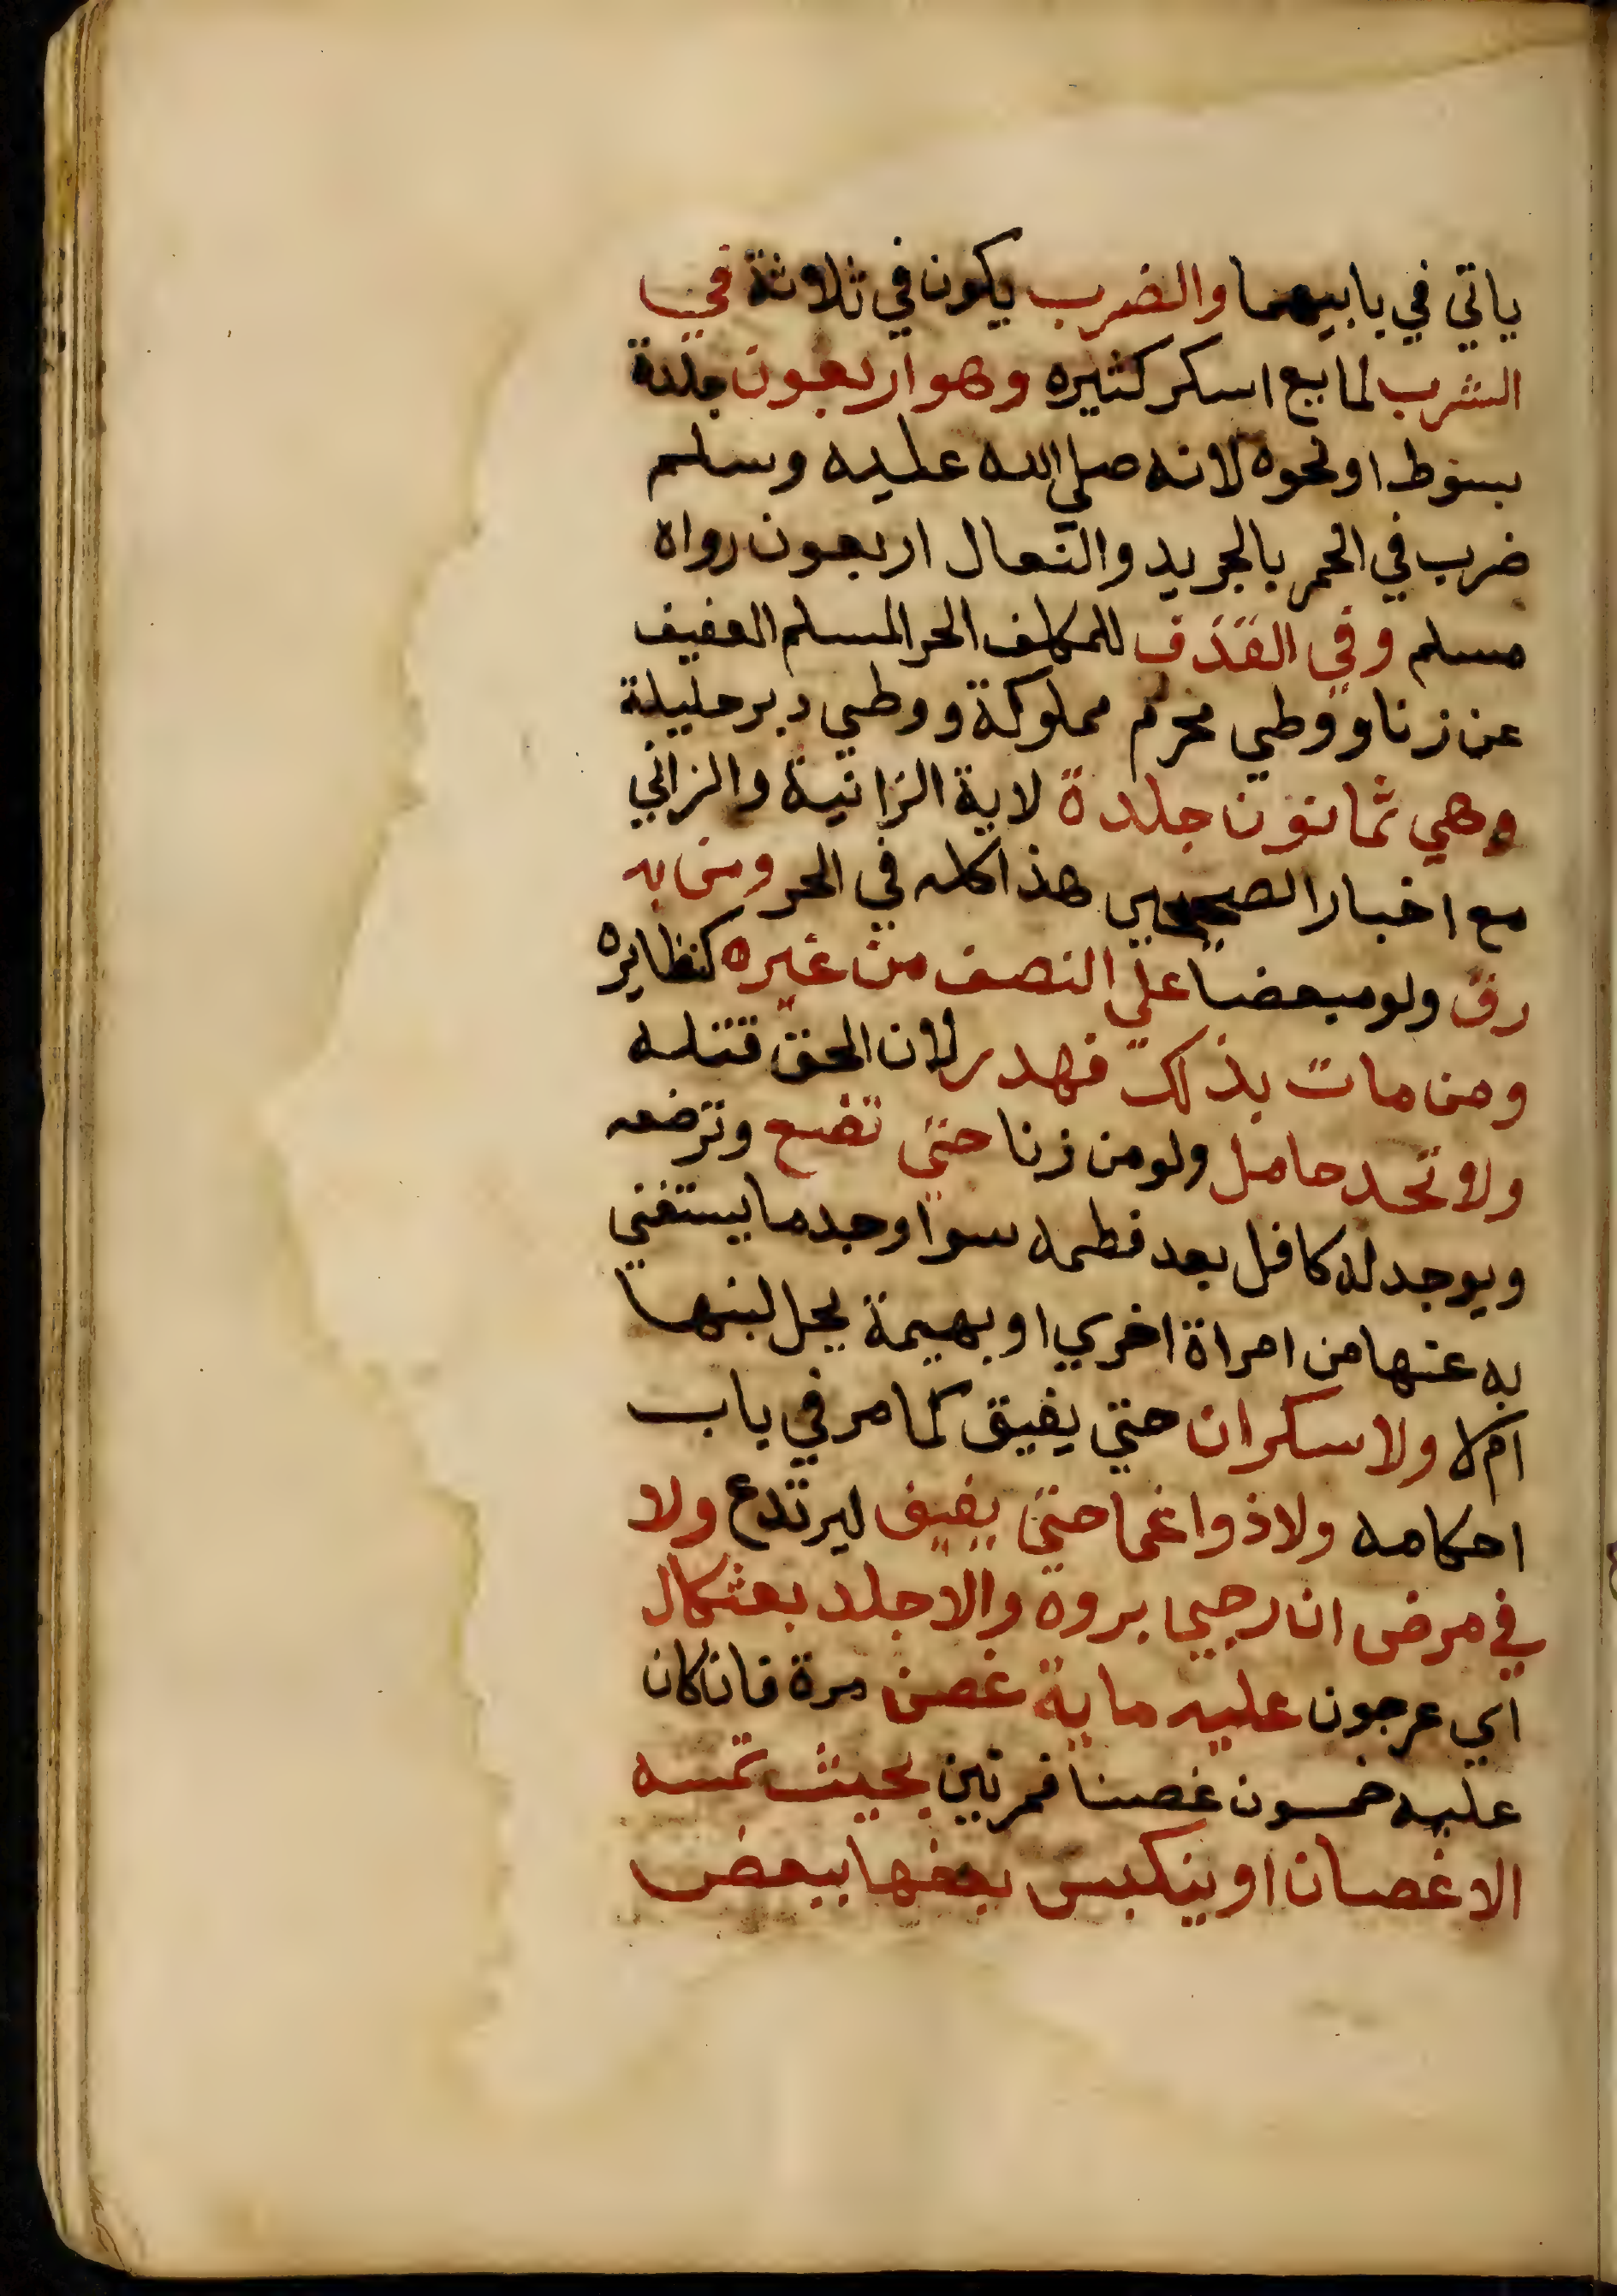 ياتي في بابيهما والضرب يكون في ثلاثة في
الشرب لمايع اسكر كثيره وهو اربعون جلدة
بسوط او نحوه لانه صلي الله عليه وسلم
ضرب في الخمر بالجريد والنعال اربعون رواه
مسلم وفي القذف للمكلف الحر المسلم العفيف
عن زنا ووطي محرم مملوكة ووطي دبر حليلة
وهي ثمانون جلدة لاية الزانية والزاني
مع اخبار الصحيحين هذا كله في الحر ومن به
رق ولو مبعضا علي النصف من غيره كنظايره
ومن مات بذلك فهدر لان الحق قتله
ولا تحد حامل ولو من زنا حتي تضع وترضعه
ويوجد له كافل بعد فطمه سوا وجد ما يستغني
به عنها من امراة اخري او بهيمة يحل لبنها
ام لا ولا سكران حتي يفيق كما مر في باب
احكامه ولا ذو اغما حتي يفيق ليرتدع ولا
في مرض ان رجي بروه والا جلد بعثكال
اي عرجون عليه ماية غصن مرة فان كان
عليه خمسون غصنا فمرتين بحيث تمسه
الاغصان او ينكبس بعضها ببعض